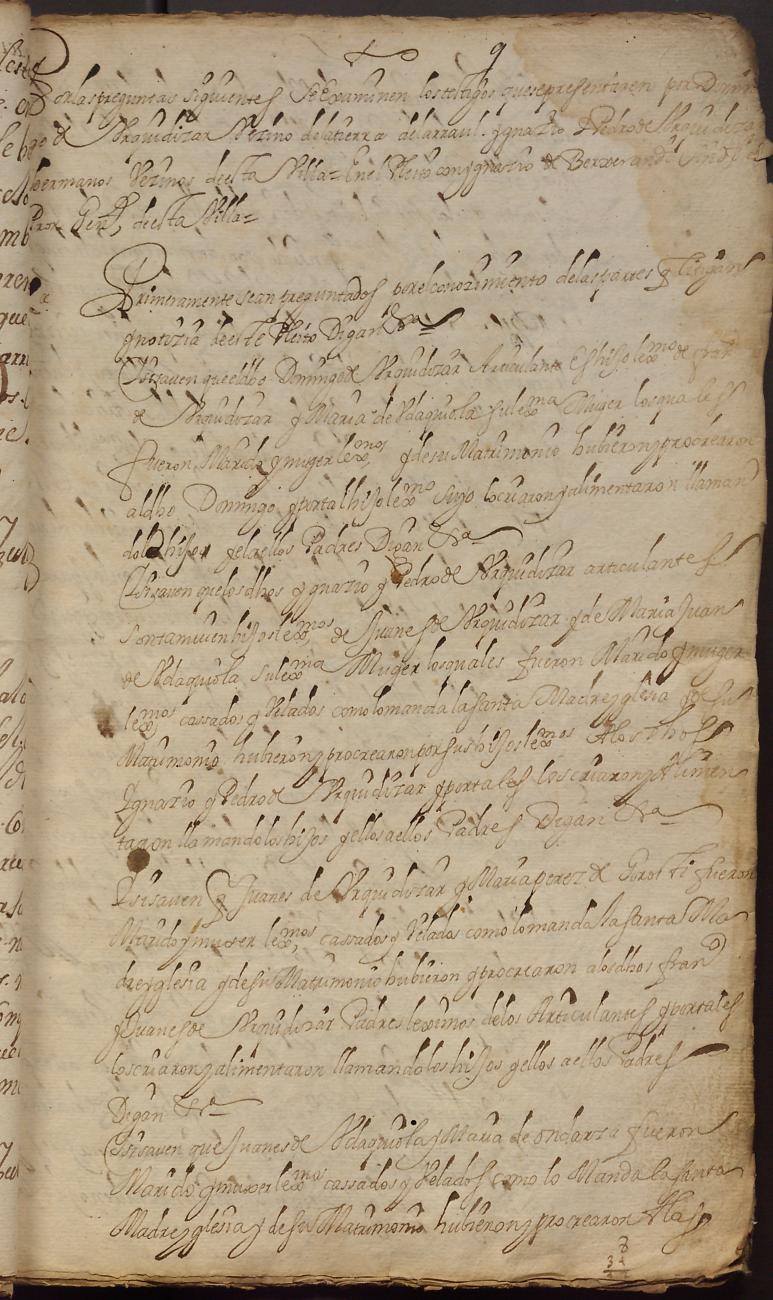 9
Por las preguntas siguientes se examinen los testigos que se presentaren por Domin
go de Arguidizar Vezino de la tierra de larraul. ygnazio y Pedro de Arguidizar
hermanos Vezinos de esta Villa = En el Pleito con ygnazio de Berverandi
Pror. Genl, de esta Villa =
Primeramente sean preguntados por el conozimiento de las partes q litigan
y notizia de este Pleito Digan &a
Ytt si saven que el dho Domingo de Arguidizar Articulante es hijo lexmo de fran
de Arguidizar y Maria de Udaquiola su lexma Muger los quales
fueron Marido y muger lexmos, y de su Matrimonio hubieron y procrearon
al dho Domingo y por tal hijo lexmo suyo lo criaron y alimentaron llaman
dole hijo y el a ellos Padres Digan &a
Ytt si saven que los dhos ygnazio y Pedro de Arguidizar articulantes
son tamuien hijos lexmos, de Juanes de Arguidizar y de Maria Juan
de Udaquiola su lexma Muger los quales fueron Marido y muger
lexmos cassados y Velados como lo manda la santa Madre yglesia y de su
Matrimonio hubieron y procrearon por sus hijos lexmos A los dhos
Ygnazio y Pedro de Arguidizar y por tales los criaron y Alimen
taron llamandolos hijos y ellos a ellos Padres Digan &a
Ytt si saven q Juanes de Arguidizar y Maria perez de Gorosti fueron
Marido y muger lexmos, cassados y Velados como lo manda la santa Ma
dre yglesia y de su Matrimonio hubieron y procrearon a los dhos fran
y Juanes de Arguidizar Padres lexitimos de los Articulantes y por tales
los criaron y alimentaron llamandolos hijos y ellos a ellos Padres
Digan &a
Ytt si saven que Juanes de Udaquiola y Maria de ondarza fueron
Marido y muger lexmos cassados y Velados como lo Manda la santa
Madre yglesia y de su Matrimonio hubieron y procrearon A las